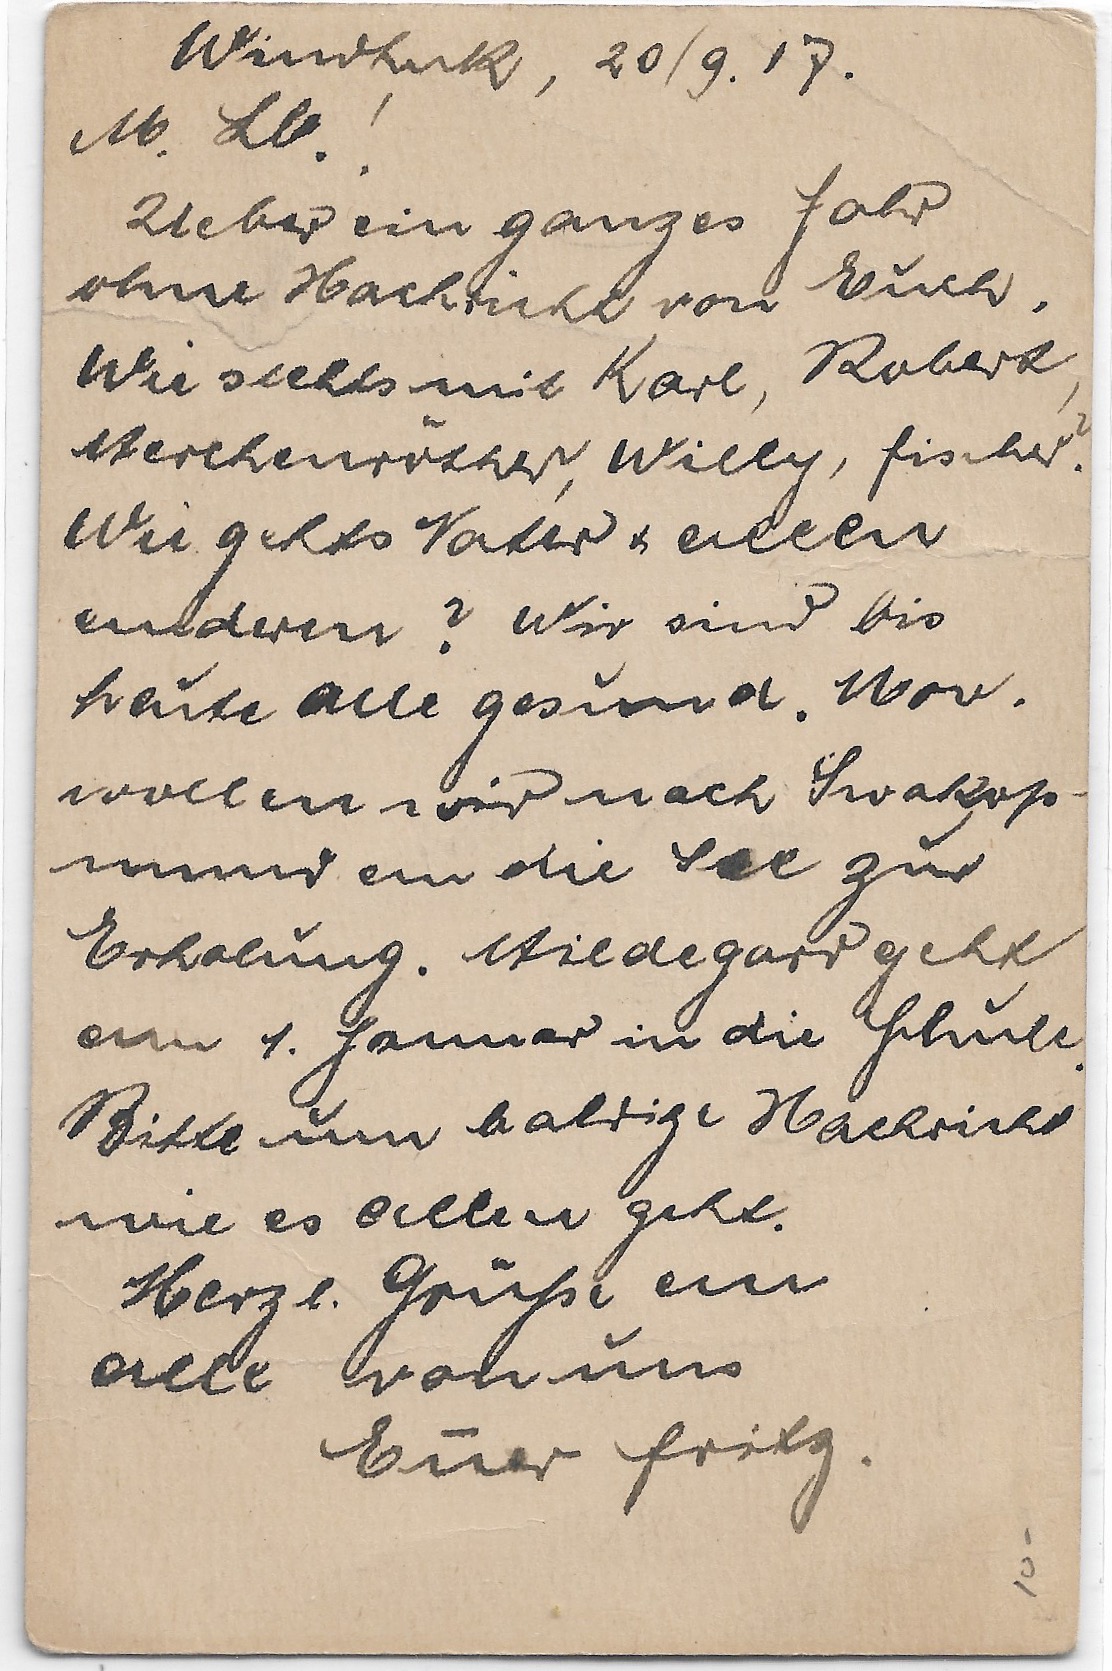 Windhuk, 20/9. 17.
M. Lb.!
Ueber ein ganzes Jahr
ohne Nachricht von Euch.
Wie stehts mit Karl, Robert,
Herchenröther, Willy, Fischer?
Wie gehts Vater & allen
anderen? Wir sind bis
heute alle gesund. Nov.
wollen wir nach Swakop-
mund an die See zur
Erholung. Hildegard geht
am 1. Januar in die Schule.
Bitte um baldige Nachricht
wie es allen geht.
Herzl. Grüße an
alle von uns
Euer Fritz.
10-